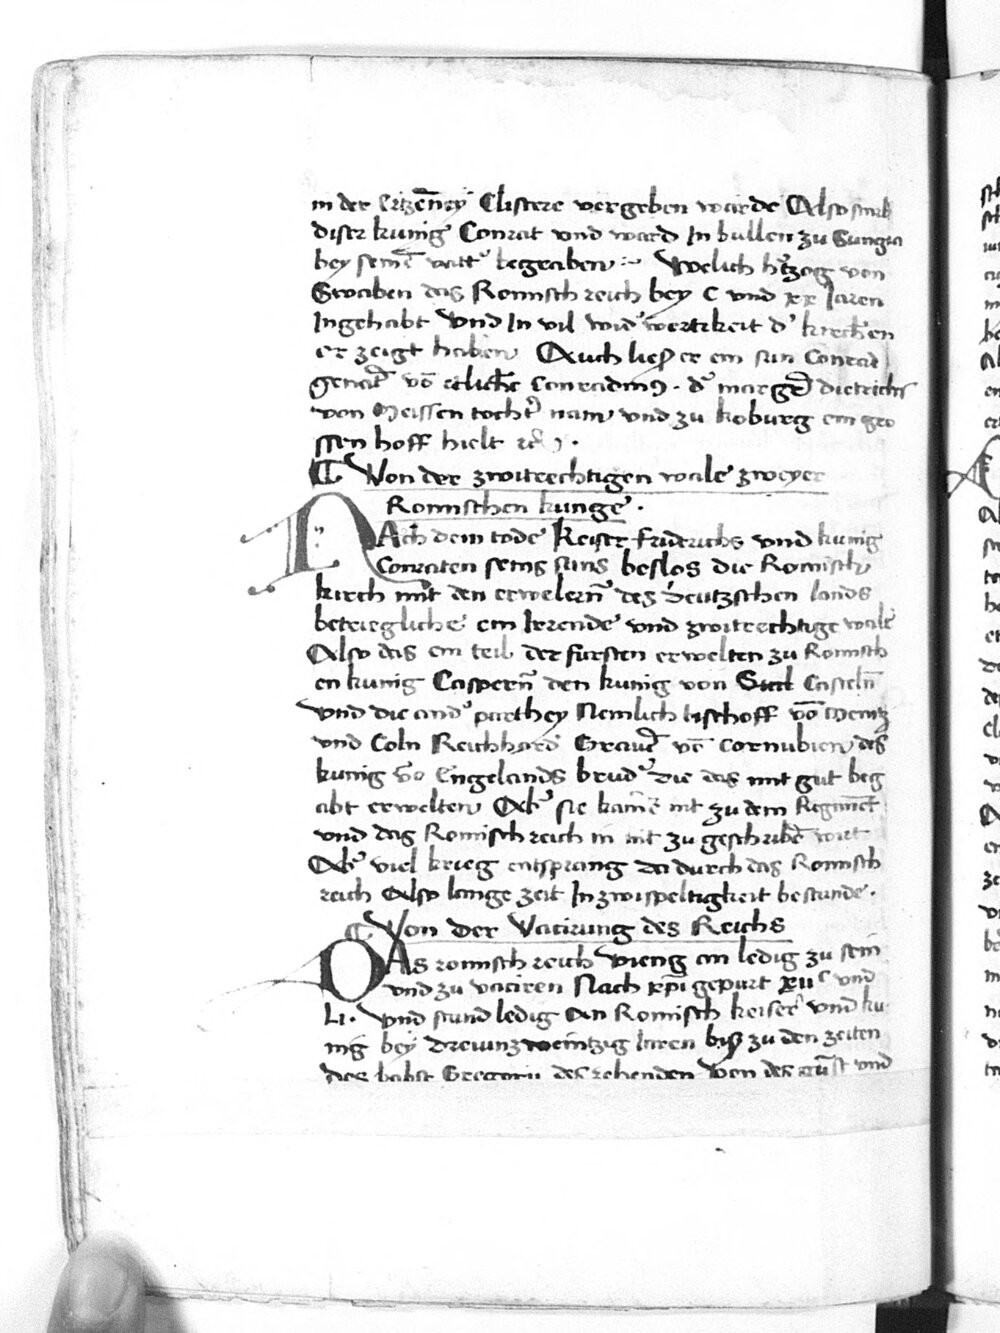 in der Ertzeney Clistere vergeben warde Also starb
diser kunig Conrat vnd ward In bullen zu
bey seinē vatt' begraben :~ Welich h'tzog von
Swaben das Romisch reich bey C vnd xx Jaren
Ingehabt Vnd In vil wid'wertikeit d' kirchen
er zeigt haben Auch lies er ein sun Conrad
genāt vō etlichē Conradinus · d' margrē dietrichs
von Meissen tocht' nam vnd zu koburg ein gro
ssen hoff hielt
¶ Von der zwitrechtigen wale zweyer
Romischen kunge ·
NAch dem tode keiser fridrichs vnd kunig
Conraten seins suns beslos die Romisch
kirch mit den erwelern̄ des Deutzschen lands
betriegliche ein Irrende vnd zwitrechtige wale
Also das ein teil der fursten erwelten zu Romisch
en kunig Caspern̄ den kunig von Casteln̄
Vnd die and' parthey Nemlich bischoff vō Mentz
vnd Coln Reichhard Graue vō cornubien des
kunig vō Engelands brud' Die das mit gut beg
abt erwelten Ab' sie kamē nit zu dem Regimēt
vnd das Romisch reich in nit zu geschribē wart
Ab' viel krieg entsprang da durch das Romisch
reich Also lange zeit In zwispeltigkeit bestunde ·
¶ Von der Vacirung des Reichs
DAs romisch reich vieng an ledig zu sein
vnd zu vaciren Nach xp̄i gepurt xiiC vnd
Li · Vnd stund ledig An Romisch keiser vnd ku
nig bey dreiundzweintzig Iaren biß zu den zeiten
des babst Gregorii des zehenden Von des vnd